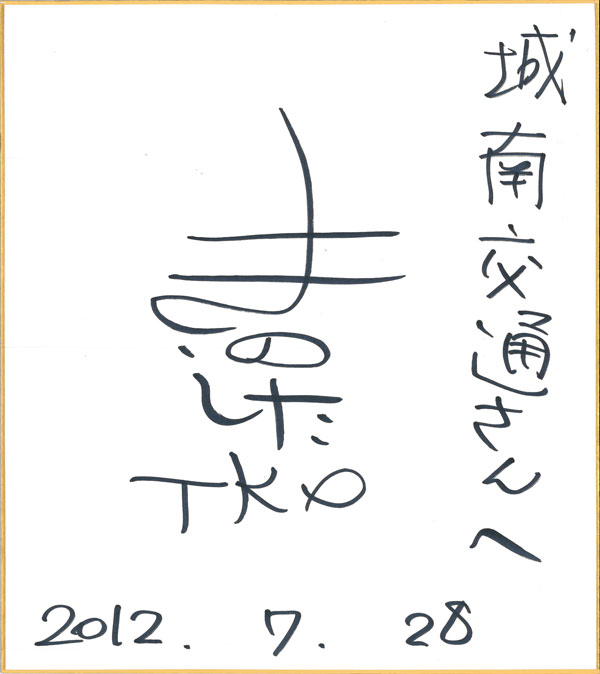 城南交通さんへ
きのした
TKO
2012. 7. 28